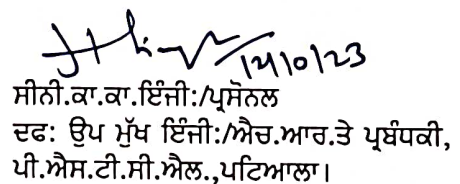 12/10/23
ਸੀਨੀ.ਕਾ.ਕਾ.ਇੰਜੀ:/ਪ੍ਰਸੋਨਲ
ਦਫ: ਉਪ ਮੁੱਖ ਇੰਜੀ:/ਐਚ.ਆਰ.ਤੇ ਪ੍ਰਬੰਧਕੀ,
ਪੀ.ਐਸ.ਟੀ.ਸੀ.ਐਲ.,ਪਟਿਆਲਾ।